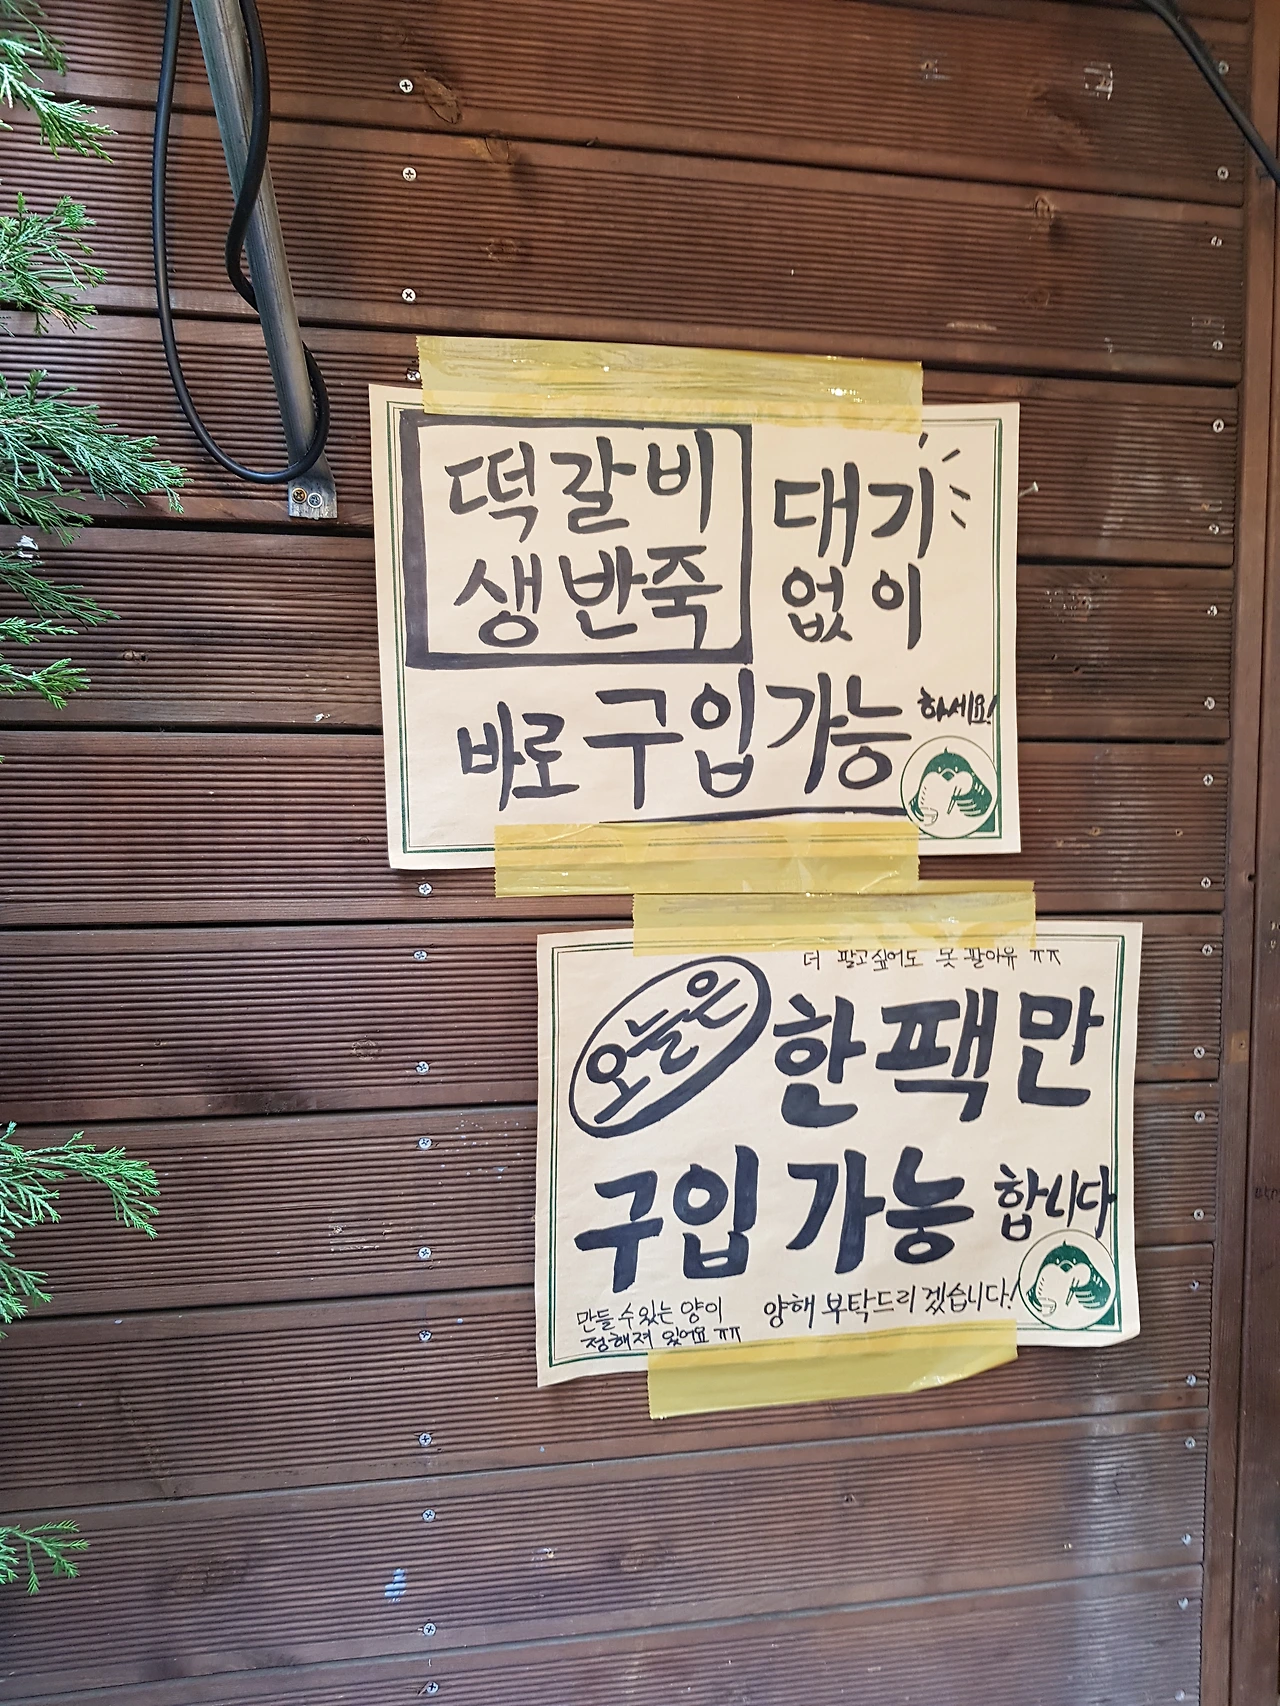 떡갈비
생반죽
대기
없이
바로 구입가능 하세요!
더 팔고싶어도 못 팔아유 ㅠㅠ
오늘은 한팩만
구입 가능 합니다
만들 수 있는 양이
정해져 있어요 ㅠㅠ
양해 부탁드리겠습니다!